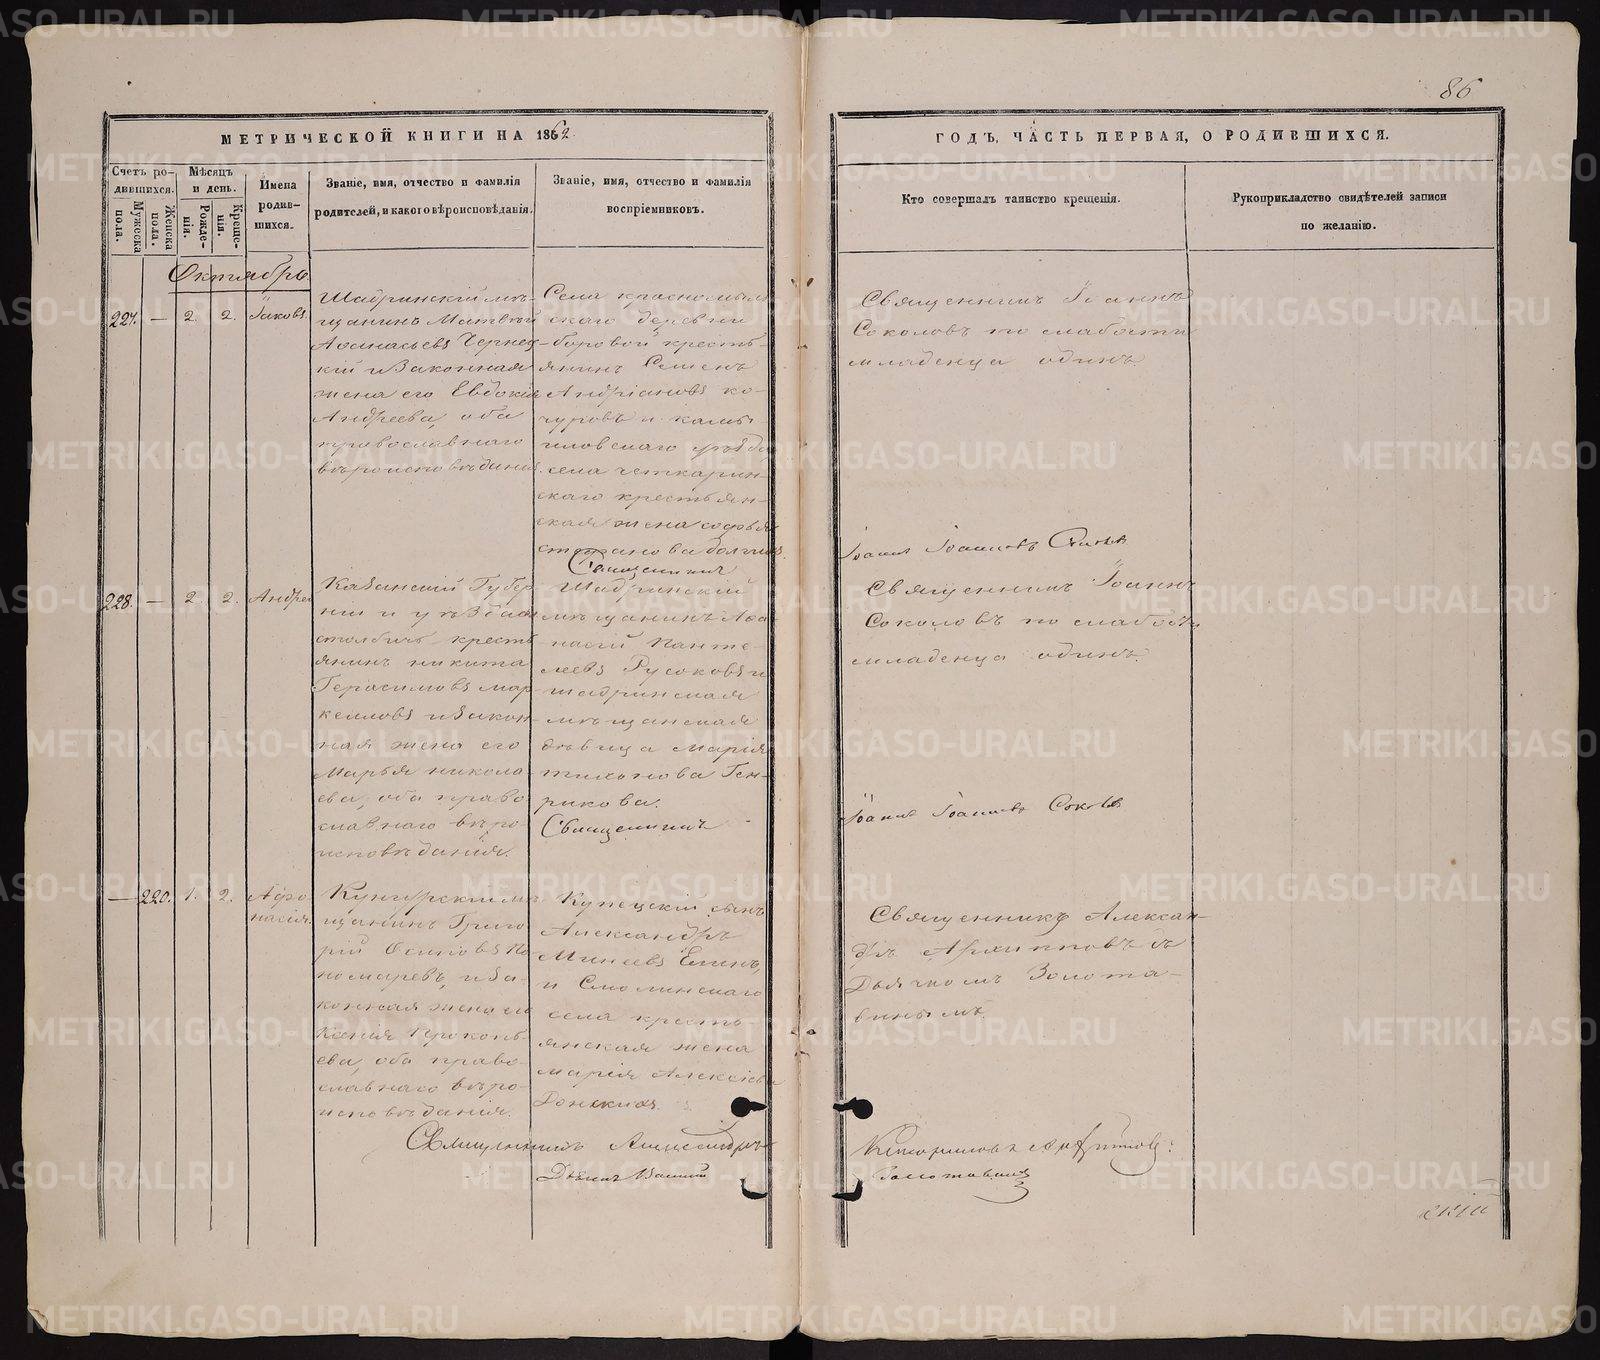 86
МЕТРИЧЕСКОЙ КНИГИ НА 1862
ГОДЪ, ЧАСТЬ ПЕРВАЯ, О РОДИВШИХСЯ.
Счетъ родившихся.
Мужеска пола.
Женска пола.
Мѣсяцъ и день.
Рожденія.
Крещенія.
Имена родившихся.
Званіе, имя, отчество и фамилія
родителей, и какого вѣроисповѣданія.
Званіе, имя, отчество и фамилія
воспріемниковъ.
Кто совершалъ таинство крещенія.
Рукоприкладство свидѣтелей записи
по желанію.
Октябрь
227. — 2. 2. Іаковъ.
Шадринскій мѣ-
щанинъ Матвѣй
Аѳанасьевъ
кій и законная
жена его Евдокія
Андреева, оба
православнаго
вѣроисповѣданія.
Села
скаго деревни
боровой кресть-
янинъ Семенъ
Андріановъ Ко-
чуровъ и Камы-
шловскаго уѣзда
села Четкарин-
скаго крестьян-
ская жена Софья
Священникъ Іоаннъ
Соколовъ по слабости
младенца одинъ.
Священникъ
Іоаннъ Іоанновъ Соколовъ
228. — 2. 2. Андрей
Казанской Губер-
ніи и уѣзда
кресть-
янинъ Никита
Герасимовъ Мар-
келловъ и закон-
ная жена его
Марья Никола-
ева, оба право-
славнаго вѣро-
исповѣданія.
Шадринскій
мѣщанинъ Аѳа-
насій Панте-
леевъ Русоковъ и
шадринская
мѣщанская
дѣвица Марія
Тихонова Ген-
рикова.
Священникъ Іоаннъ
Соколовъ по слабости
младенца одинъ.
Священникъ
Іоаннъ Іоанновъ Соколовъ
— 220. 1. 2. Афо-
насія.
Кунгурскій мѣ-
щанинъ Григо-
рій Осиповъ По-
номаревъ, и за-
конная жена его
Ксенія Прокопь-
ева, оба право-
славнаго вѣро-
исповѣданія.
Купецкій сынъ
Александръ
Минеевъ Елинъ,
и Смолинскаго
села кресть-
янская жена
Марія Алексіева
Донскихъ.
Священникъ Алексан-
дръ Архипповъ съ
Дьячкомъ Золота-
винымъ.
Священникъ Александръ
Архипповъ
Золотавинъ
METRIKI.GASO-URAL.RU